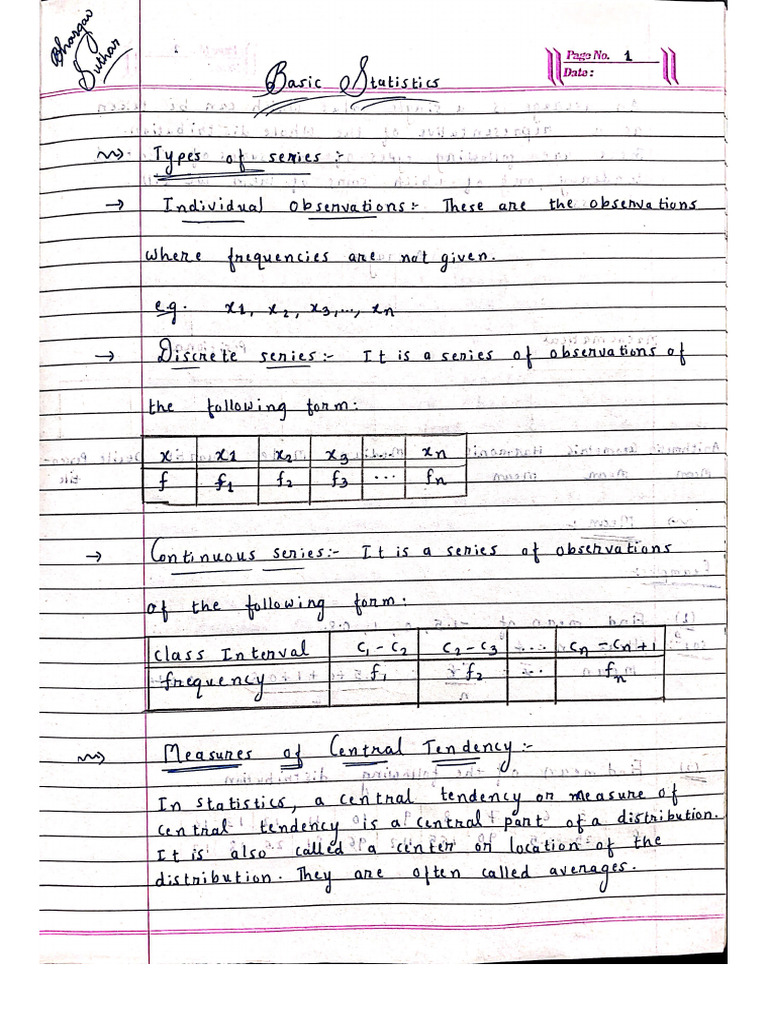 Bhargav
Suthar
Page No. 1
Date:
Basic Statistics
Types of series :-
→ Individual observations :- These are the observations
where frequencies are not given.
e.g. x1, x2, x3,..., xn
→ Discrete series :- It is a series of observations of
the following form:
x x1 x2 x3 ... xn
f f1 f2 f3 ... fn
→ Continuous series :- It is a series of observations
of the following form:
class Interval c1 - c2 c2 - c3 ... cn - cn+1
frequency f1 f2 ... fn
Measures of Central Tendency :-
In statistics, a central tendency or measure of
central tendency is a central part of a distribution.
It is also called a center or location of the
distribution. They are often called averages.